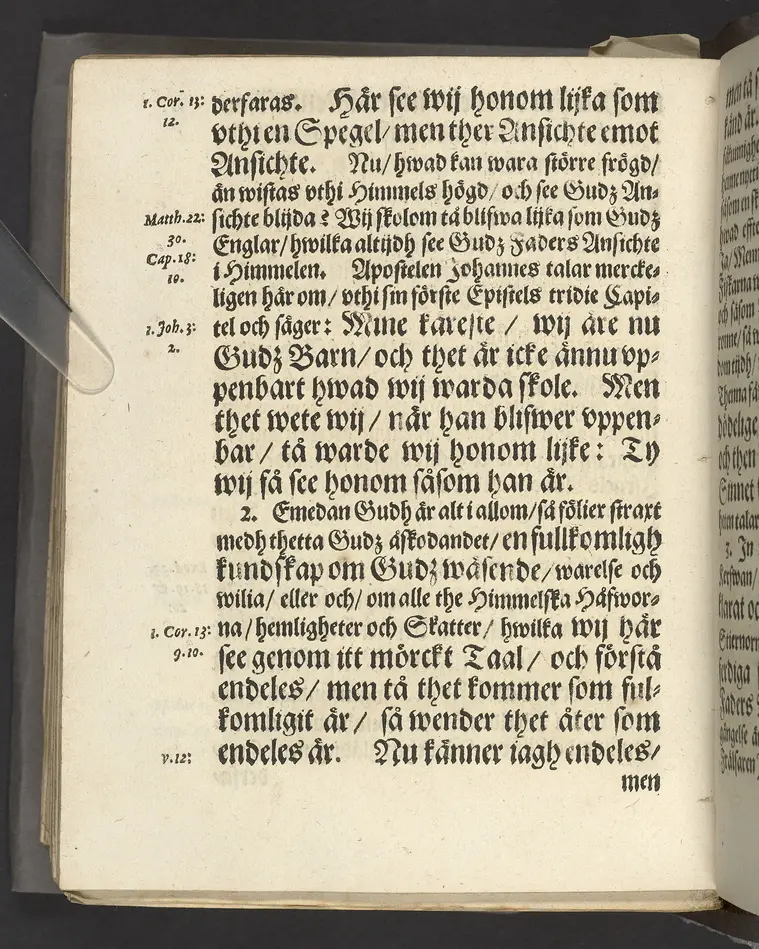 1. Cor. 13: 12.
derfaras. Här see wij honom lijka som
vthi en Spegel/ men ther Ansichte emot
Ansichte. Nu/ hwad kan wara större frögd/
än wistas vthi Himmels högd/ och see Gudz An-
Matth. 22: 30.
sichte blijda? Wij skolom tå blifwa lijka som Gudz
Englar/ hwilka altijdh see Gudz Faders Ansichte
Cap. 18: 10.
i Himmelen. Apostelen Johannes talar mercke-
ligen här om/ vthi sin förste Epistels tridie Capi-
1. Joh. 3: 2.
tel och säger: Mine käreste / wij äre nu
Gudz Barn/ och thet är icke ännu vp-
penbart hwad wij warda skole. Men
thet wete wij / när han blifwer vppen-
bar / tå warde wij honom lijke: Ty
wij få see honom såsom han är.
2. Emedan Gudh är alt i allom/ så fölier straxt
medh thetta Gudz åskodandet/ en fullkomligh
kundskap om Gudz wäsende/ warelse och
wilia/ eller och/ om alle the Himmelska Håfwor-
1. Cor. 13: 9. 10.
na/ hemligheter och Skatter/ hwilka wij här
see genom itt mörckt Taal/ och förstå
endeles/ men tå thet kommer som ful-
komligit är/ så wender thet åter som
v. 12:
endeles är. Nu känner iagh endeles/
men